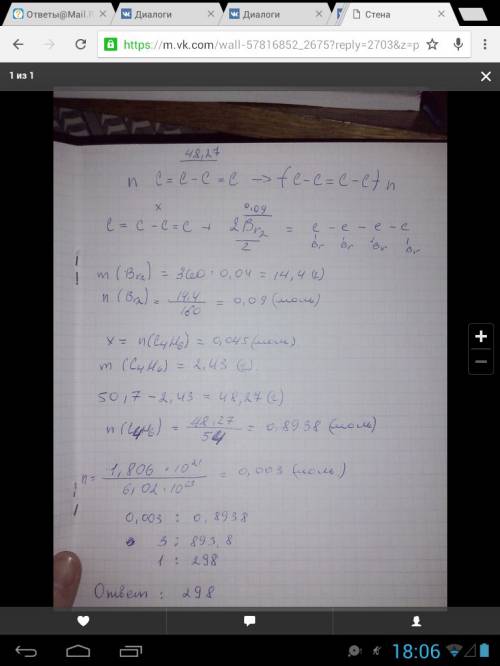 Ответы@Mail.R
Диалоги
Диалоги
Стена
https://m.vk.com/wall-57816852_2675?reply=2703&z=p
1 из 1
48,27
n C=C-C=C → (C-C=C-C)n
x 0.09
C=C-C=C + 2Br2 = C-C-C-C
2 Br Br Br Br
m(Br2) = 360 · 0,04 = 14,4 (г)
n(Br2) = 14,4/160 = 0,09 (моль)
x = n(C4H6) = 0,045 (моль)
m(C4H6) = 2,43 (г)
50,7 - 2,43 = 48,27 (г)
n(C4H6) = 48,27/54 = 0,8938 (моль)
n = 1,806 · 10²¹/6,02 · 10²³ = 0,003 (моль)
0,003 : 0,8938
3 : 893,8
1 : 298
Ответ : 298
18:06